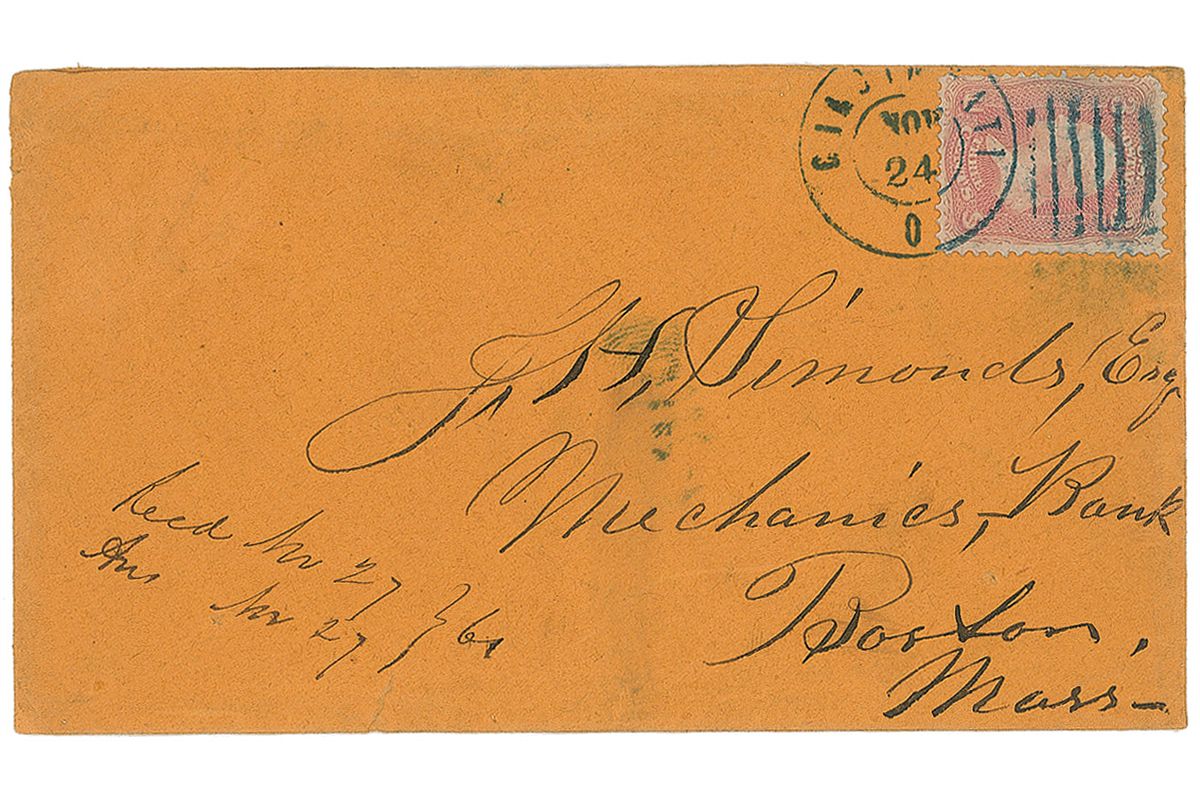 CINCINNATI
NOV
24
O
J. H. Simonds, Esq
Mechanics, Bank
Boston,
Mass-
Recd Nv 27
Ans Nv 27 } 61